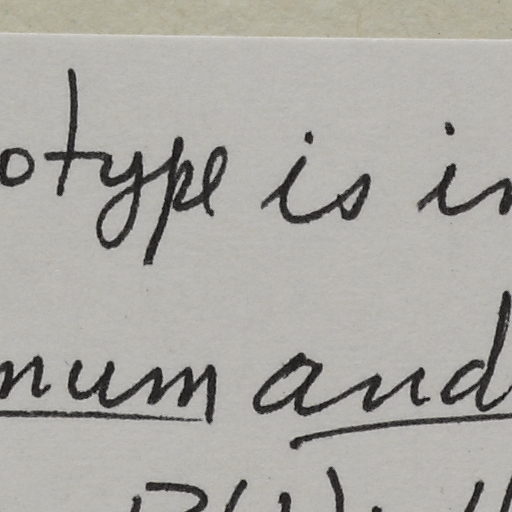 otype is in
num and